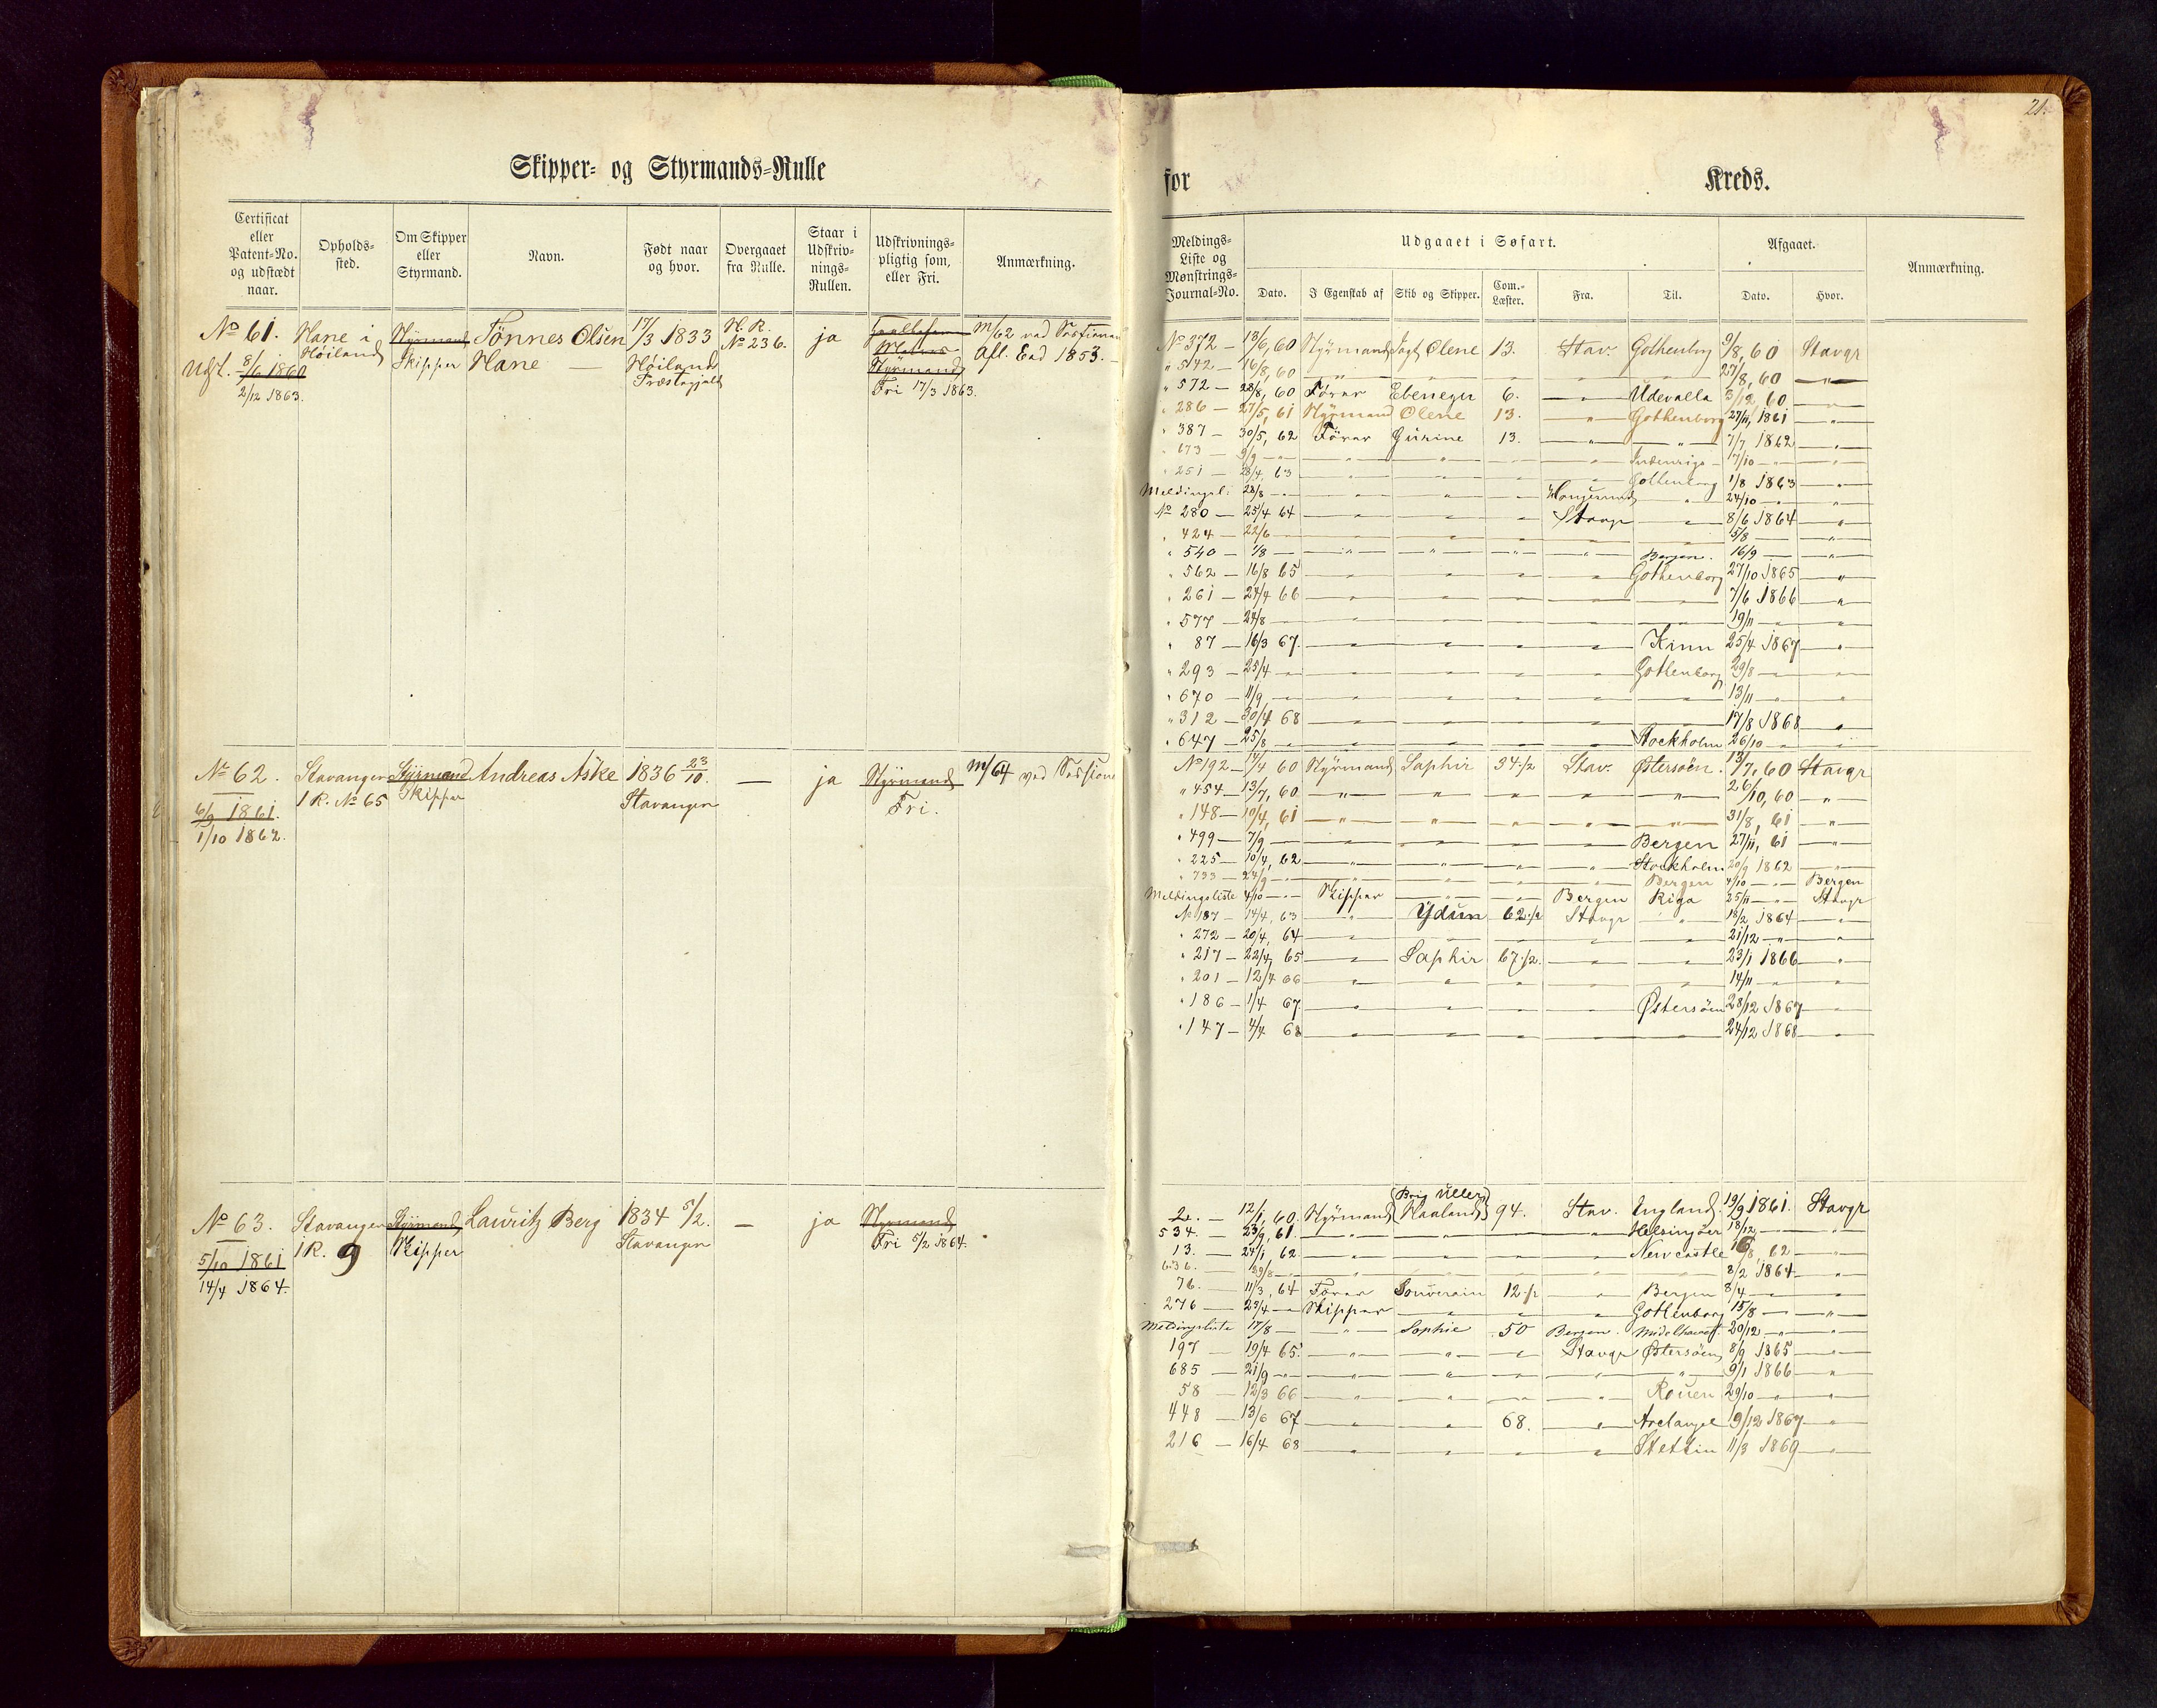 21.
Skipper- og Styrmands-Rulle
for Kreds.
Certificat eller Patent-No. og udstædt naar.
Opholds-sted.
Om Skipper eller Styrmand.
Navn.
Født naar og hvor.
Overgaaet fra Rulle.
Staar i Udskriv-nings-Rullen.
Udskrivnings-pligtig som, eller Fri.
Anmærkning.
Meldings-Liste og Mønstrings-Journal-No.
Udgaaet i Søfart.
Dato.
I Egenskab af
Skib og Skipper.
Com.-Læster.
Fra.
Til.
Afgaaet.
Dato.
Hvor.
Anmærkning.
No 61. Hane i Styrmand Tønnes Olsen 17/3 1833 H. R. ja m/62 ved Sessionen
Høiland Skipper Hane — Høiland No 236. Afl. Ead 1853.
Udst. 8/6 1860 Præstegjeld Styrmand
2/12 1863. Fri 17/3 1863.
No 372 — 13/6, 60 Styrmand Jagt Olene 13. Stav. Gothenborg 9/8, 60 Stavgr
" 542 — 16/8, 60 — " — 27/8, 60 — " —
" 572 — 28/8, 60 Fører Ebenezer 6. — " — Udevalla 3/12 60 — " —
" 286 — 27/5, 61 Styrmand Olene 13. — " — Gothenborg 27/11, 1861 — " —
" 387 — 30/5, 62 Fører Gurine 13. — " — " — 7/7 1862 — " —
" 673 — 9/9 — " — Indenrigs — 17/10 — " —
" 251 — 28/4, 63 — " — Gothenborg 1/8 1863 — " —
Meldingsl: 28/8 — " — 24/10 — " —
No 280 — 25/4 64 — " — Stavgr — " — 8/6 1864 — " —
" 424 — 22/6 — " — 5/8 — " —
" 540 — 1/8 — " — Bergen. 16/9 — " —
" 562 — 16/8 65 — " — Gothenborg 27/10 1865 — " —
" 261 — 24/4 66 — " — 7/6 1866 — " —
" 577 — 24/8 — " — 19/11 — " —
" 87 — 16/3 67. — " — Kinn 25/4 1867 — " —
" 293 — 25/4 — " — Gothenborg 29/8 — " —
" 670 — 11/9 — " — 13/11 — " —
" 312 — 30/4 68 — " — 17/8 1868 — " —
" 647 — 25/8 — " — Stockholm 26/10 — " —
No 62. Stavanger Styrmand Andreas Aske 1836 23/10. — ja Styrmand m/64 ved Sessionen
1 R. No 65 Skipper Stavanger Fri.
6/9 1861.
1/10 1862.
No 192 — 17/4 60 Styrmand Saphir 34 1/2 Stav. Østersøen. 13/7, 60 Stavgr
" 454 — 13/7, 60 — " — 26/10, 60 — " —
" 148 — 19/4, 61 — " — 31/8, 61 — " —
" 499 — 7/9 — " — Bergen 27/11, 61 — " —
" 225 — 10/4, 62 — " — Stockholm 20/9 1862 — " —
" 733 — 24/9 — " — Bergen 4/10 — " — Bergen
Meldingsliste 4/10 — " — Skipper — " — Bergen Riga 25/11 — " — Stavgr
No 187 — 14/4, 63 — " — Ydun 62 1/2 Stavgr — " — 18/2 1864 — " —
" 272 — 20/4, 64 — " — 21/12 — " —
" 217 — 22/4, 65 — " — Saphir 67 1/2. — " — 23/1 1866 — " —
" 201 — 12/4 66 — " — 14/11 — " —
" 186 — 1/4 67 — " — Østersøen 28/12 1867 — " —
" 147 — 4/4 68 — " — 24/12 1868 — " —
No 63. Stavanger Styrmand Lauritz Berg 1834 5/2. — ja Styrmand
1 R. 9 Skipper Stavanger Fri 5/2 1864.
5/10 1861
14/4 1864.
2. — 12/1, 60. Styrmand (Brig Uller) Haaland 94. Stav. England. 19/9 1861. Stavgr
534. — 23/9, 61. — " — Helsingøer 18/12 — " —
13. — 24/1 62 — " — Newcastle 16/8, 62 — " —
636. — 29/8 — " — 8/2 1864 — " —
76. — 11/3, 64 Fører Souverain 12 1/2 — " — Bergen 8/4 — " —
276 — 23/4 — Skipper — " — Gothenborg 15/8 — " —
Meldingsliste 17/8 — " — Sophie 50 Bergen. Middelhavet. 20/12 — " —
197 — 19/4 65. — " — Stavgr Østersøen 8/9 1865 — " —
685 — 21/9 — " — 9/1 1866 — " —
58 — 12/3 66 — " — Rouen 29/10 — " —
448 — 13/6 67 — " — 68. — " — Archangel 9/12 1867 — " —
216 — 16/4 68 — " — Stettin 11/3 1869 — " —